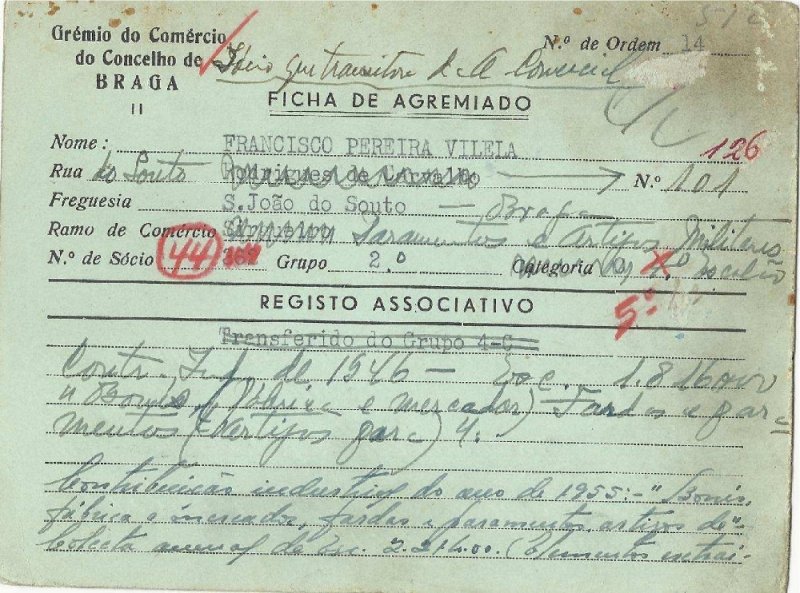 Grémio do Comércio
do Concelho de
BRAGA
Sócio que transitou da A. Comercial
N.º de Ordem 14
FICHA DE AGREMIADO
Nome: FRANCISCO PEREIRA VILELA
126
Rua do Souto Rodrigues de Carvalho N.º 101
Freguesia S.João do Souto — Braga
Ramo de Comércio Paramentos e Artigos Militares
N.º de Sócio 44 Grupo 2.º Categoria 4.º escalão
5.º
REGISTO ASSOCIATIVO
Transferido do Grupo 4-C
Contr. Ind. de 1946 — Esc. 1.816
"Bonés, (Fábrica e mercador) Fardas e par=
mentos (Artigos para) 4.
Contribuição industrial do ano de 1955:-"Bonés
fábrica e mercador, fardas e paramentos artigos de"-
Colecta anual de Esc. 2.214.00. (Elementos extraí-